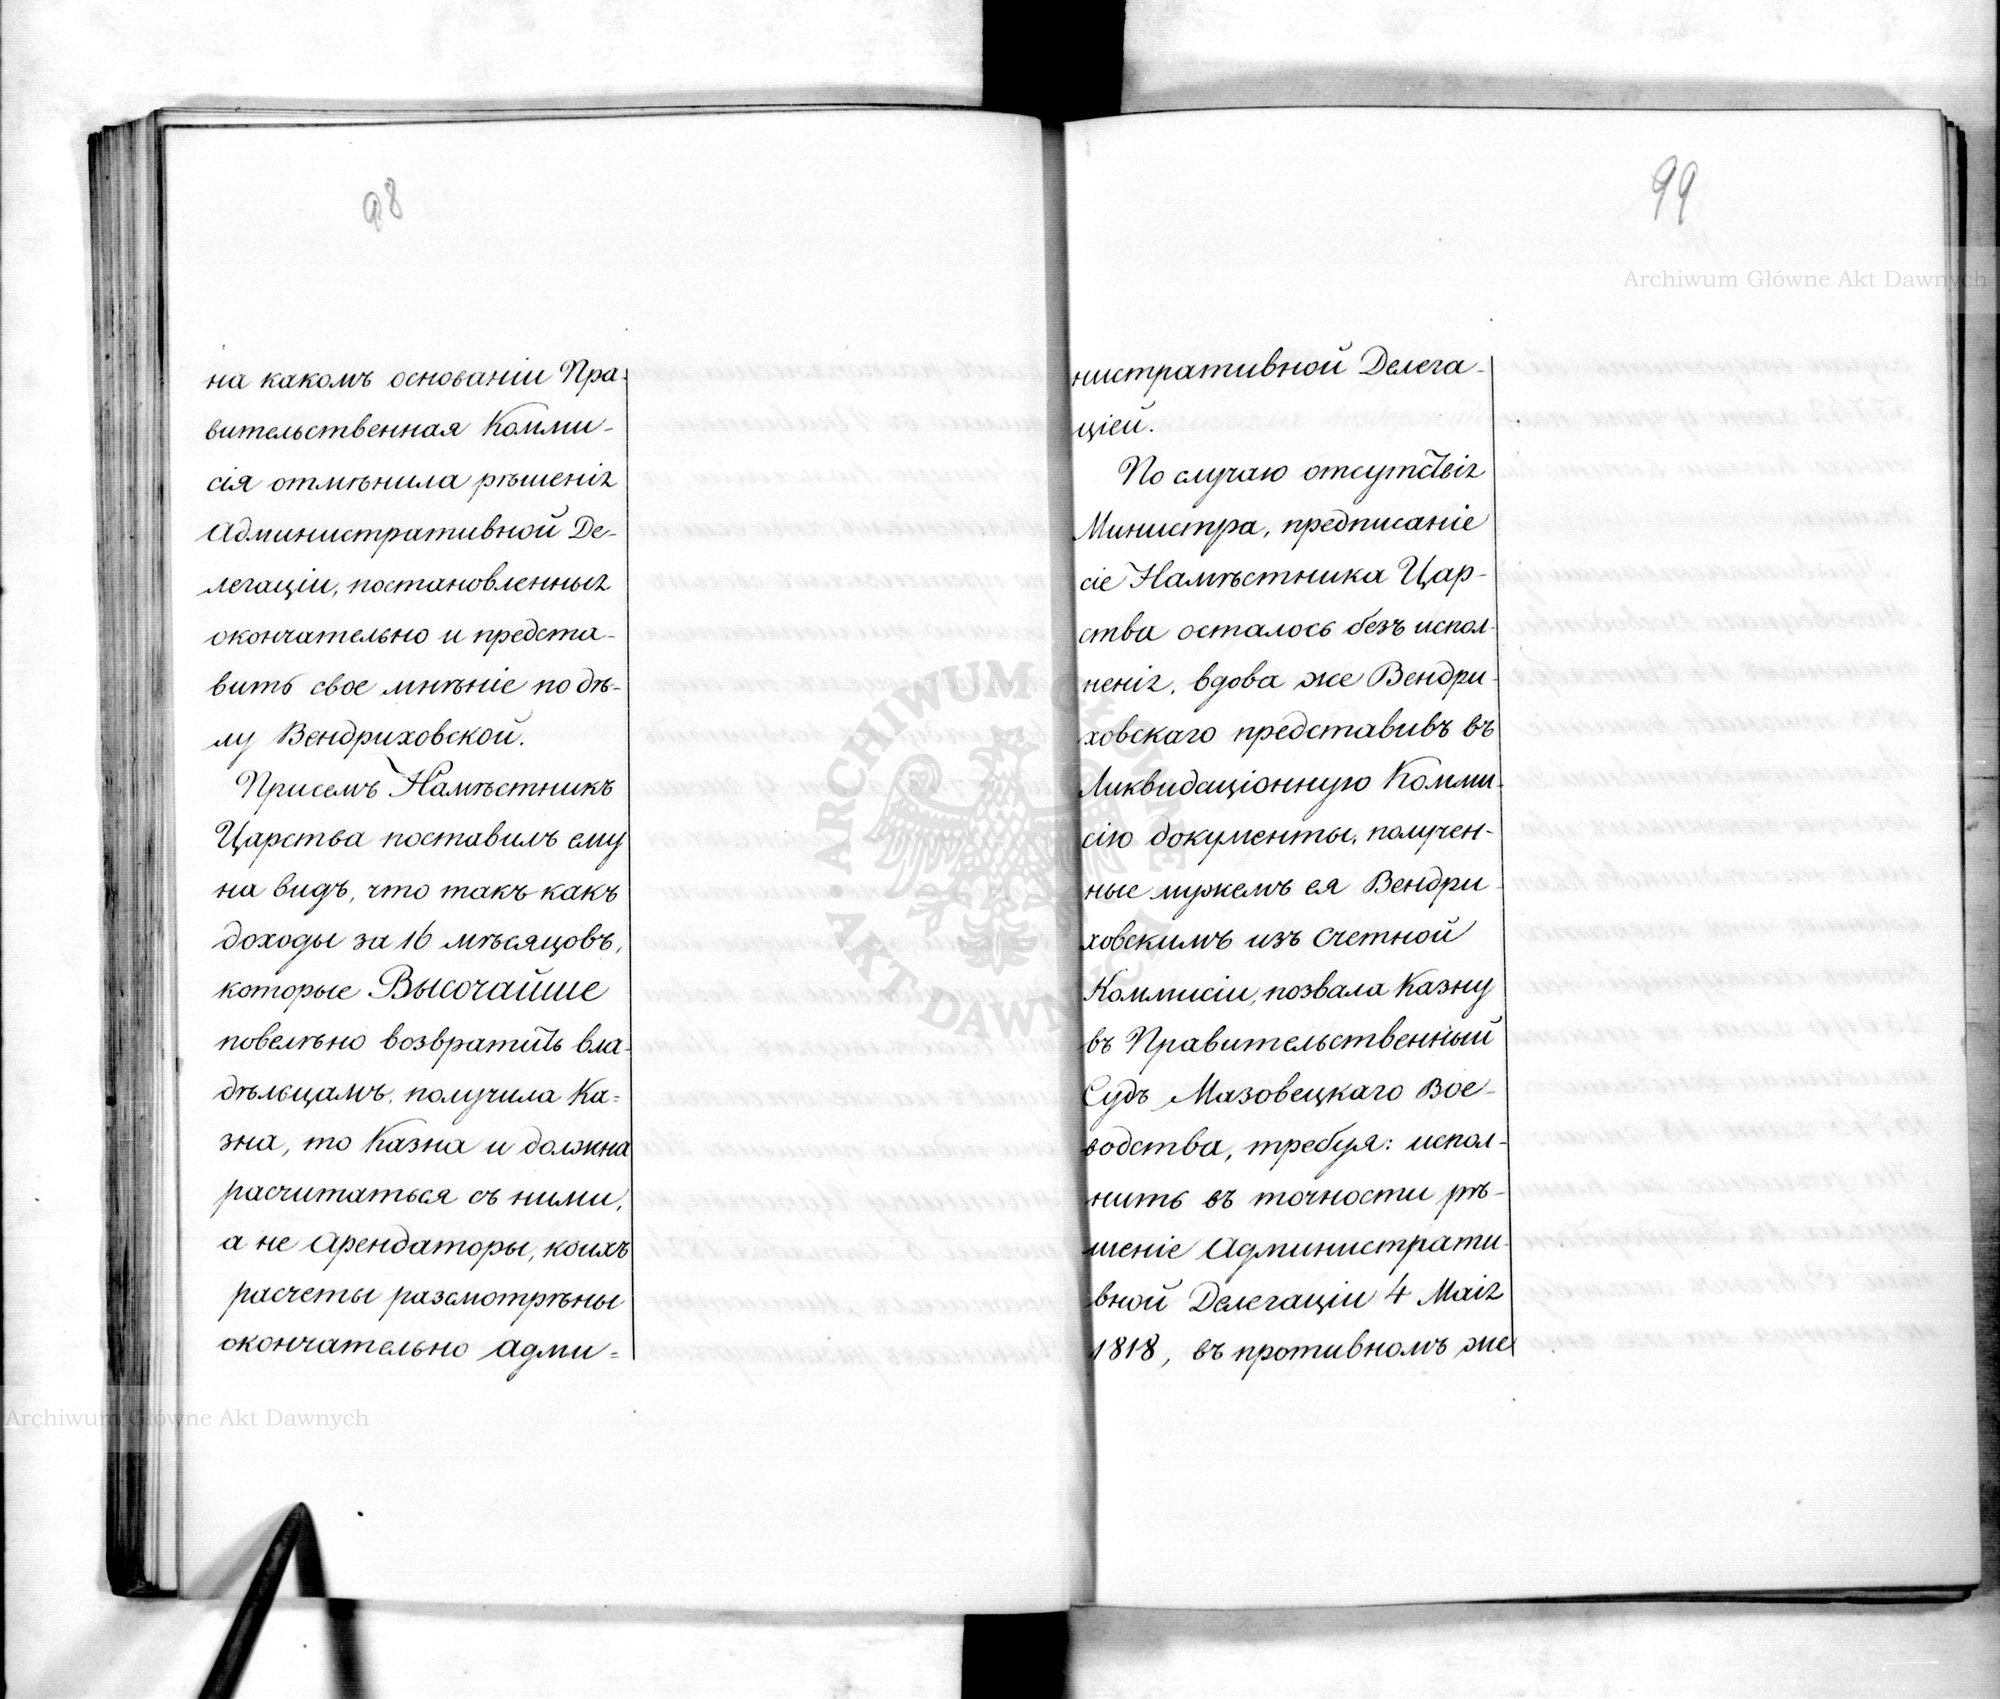 98
на какомъ основаніи Пра-
вительственная Комми-
сія отмѣнила рѣшенія
Административной Де-
легаціи, постановленныя
окончательно и предста-
вить свое мнѣніе по дѣ-
лу Вендриховской.
Присемъ Намѣстникъ
Царства поставилъ ему
на видъ, что такъ какъ
доходы за 16 мѣсяцовъ,
которые Высочайше
повелѣно возвратить вла-
дѣльцамъ, получила Ка=
зна, то Казна и должна
расчитаться съ ними,
а не Арендаторы, коихъ
расчеты разсмотрѣны
окончательно Адми=
99
нистративной Делега-
ціей.
По случаю отсутствія
Министра, предписаніе
сіе Намѣстника Цар-
ства осталось безъ испол-
ненія, вдова же Вендри-
ховскаго представивъ въ
Ликвидаціонную Комми-
сію документы, получен-
ные мужемъ ея Вендри-
ховскимъ изъ Счетной
Коммисіи, позвала Казну
въ Правительственный
Судъ Мазовецкаго Вое-
водства, требуя: испол-
нить въ точности рѣ-
шеніе Администрати-
вной Делегаціи 4 Маія
1818, въ противномъ же
Archiwum Główne Akt Dawnych
ARCHIWUM GŁÓWNE AKT DAWNYCH
Archiwum Główne Akt Dawnych